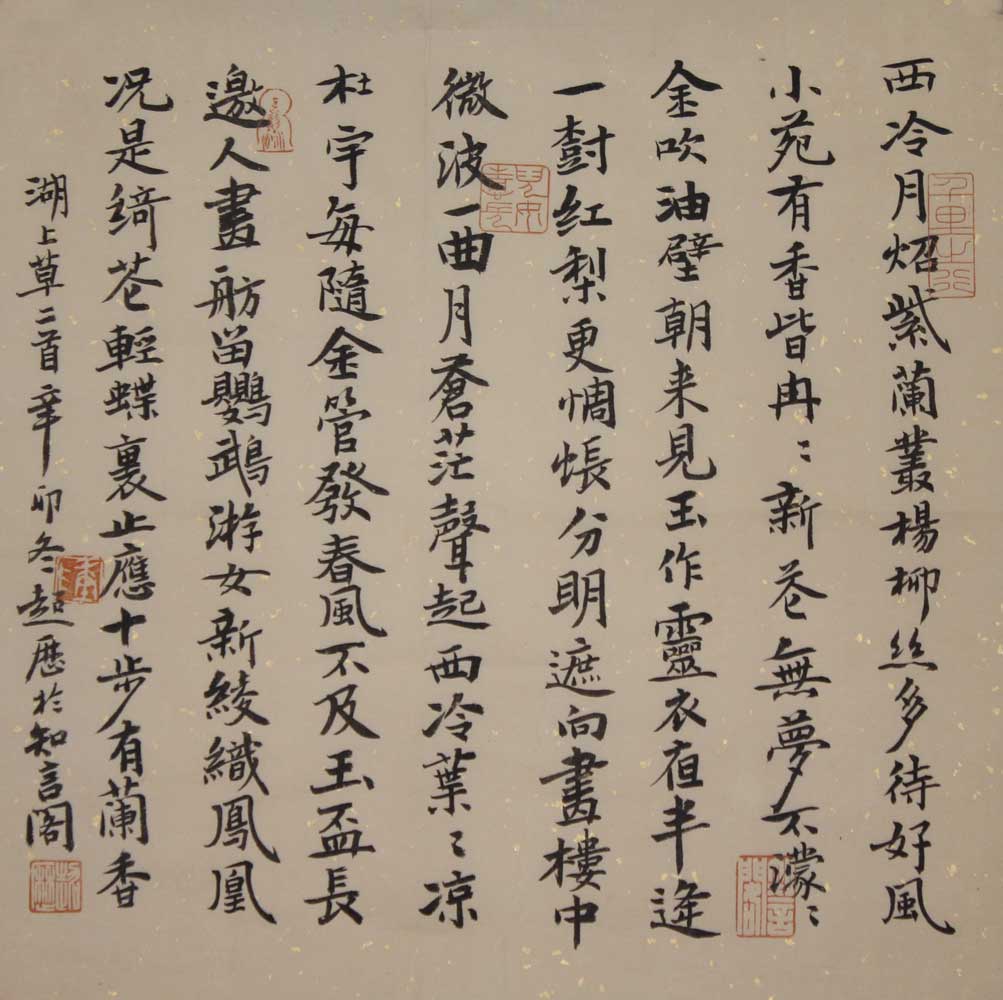 西冷月炤紫蘭叢楊柳絲多待好風
小苑有香皆冉〻新花無夢不濛〻
金吹油壁朝来見玉作靈衣夜半逢
一樹紅梨更惆悵分明遮向畫樓中
微波一曲月蒼茫聲起西冷葉〻凉
杜宇每隨金管發春風不及玉盃長
邀人畫舫留鸚鵡游女新綾織鳳凰
况是綺花輕蝶裏止應十步有蘭香
湖上草二首辛卯冬超歷於知言閣